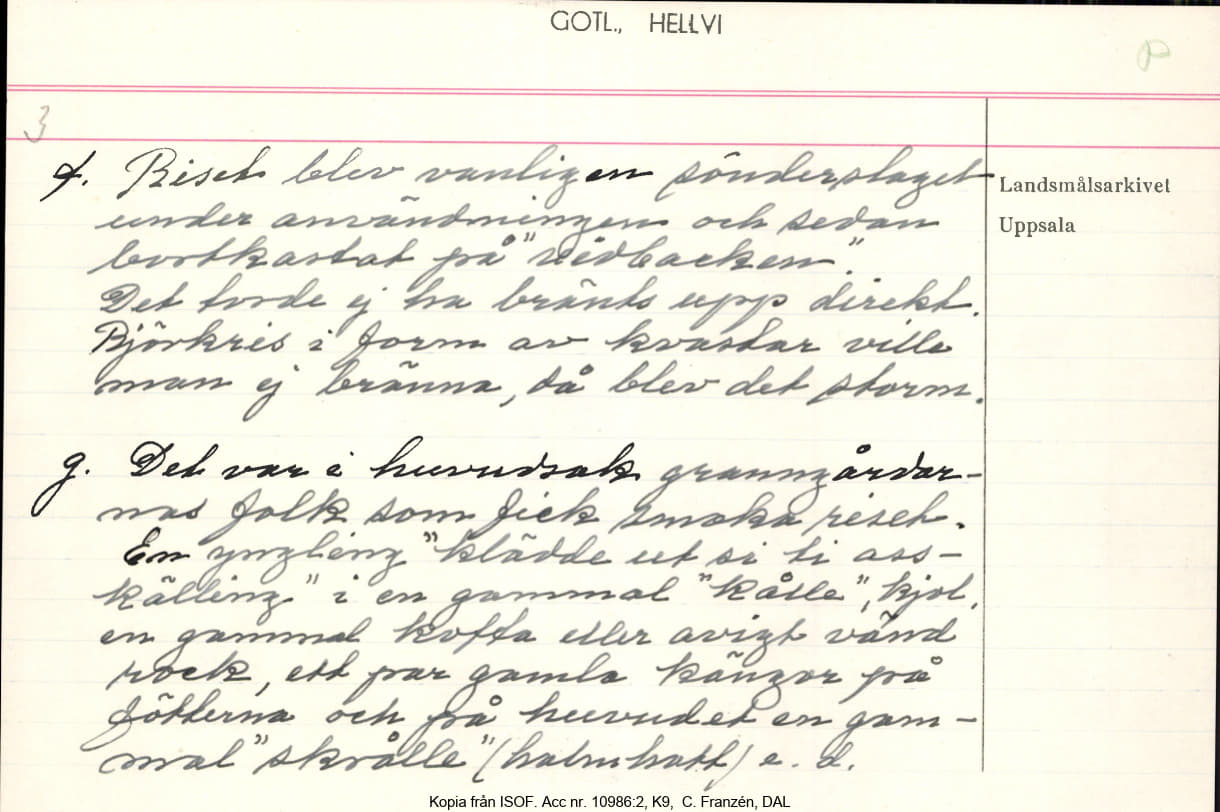 GOTL., HELLVI
P
3
f. Riset blev vanligen sönderslaget
under användningen och sedan
bortkastat på "vedbacken".
Det torde ej ha bränts upp direkt.
Björkris i form av kvastar ville
man ej bränna, då blev det storm.
g. Det var i huvudsak granngårdar-
nas folk som fick smaka riset.
En yngling "klädde ut si ti ass-
källing" i en gammal "kålle", kjol,
en gammal kofta eller avigt vänd
rock, ett par gamla kängor på
fötterna och på huvudet en gam-
mal "skrålle" (halmhatt) e. d.
Landsmålsarkivet
Uppsala
Kopia från ISOF. Acc nr. 10986:2, K9, C. Franzén, DAL